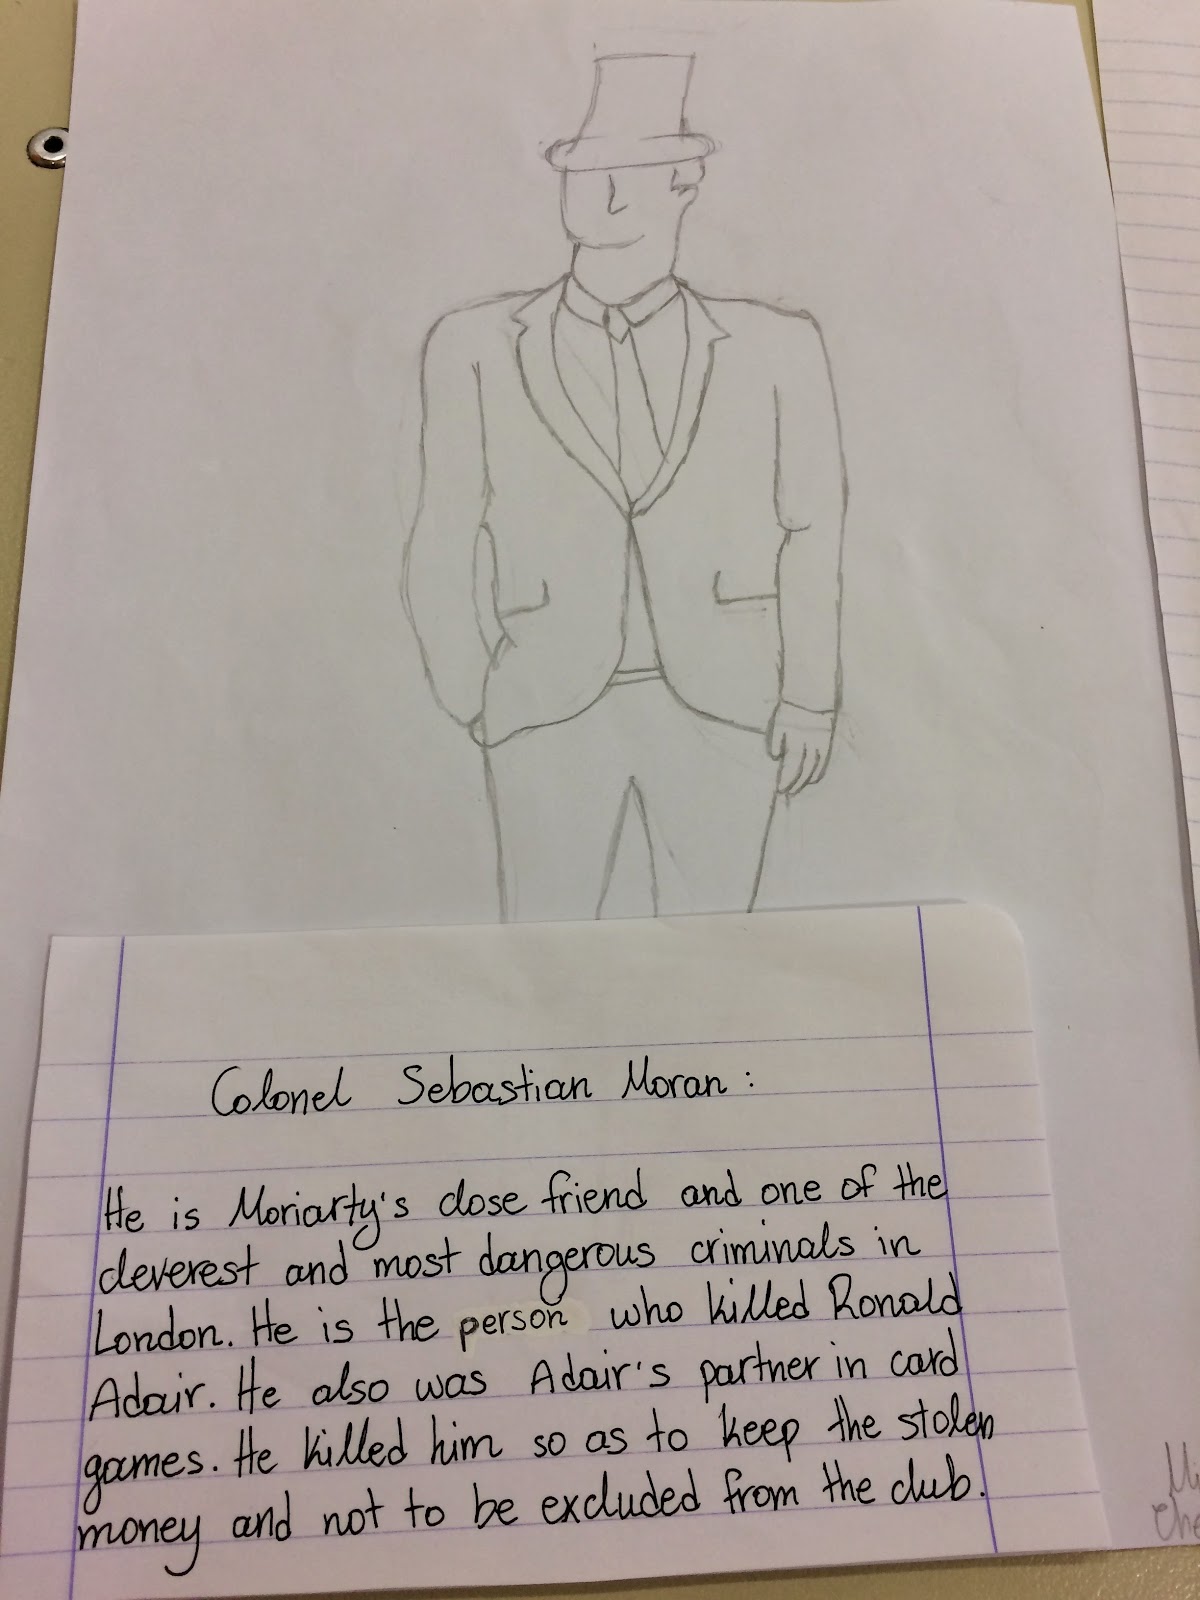 Colonel Sebastian Moran:
He is Moriarty's close friend and one of the
cleverest and most dangerous criminals in
London. He is the person who killed Ronald
Adair. He also was Adair's partner in card
games. He killed him so as to keep the stolen
money and not to be excluded from the club.